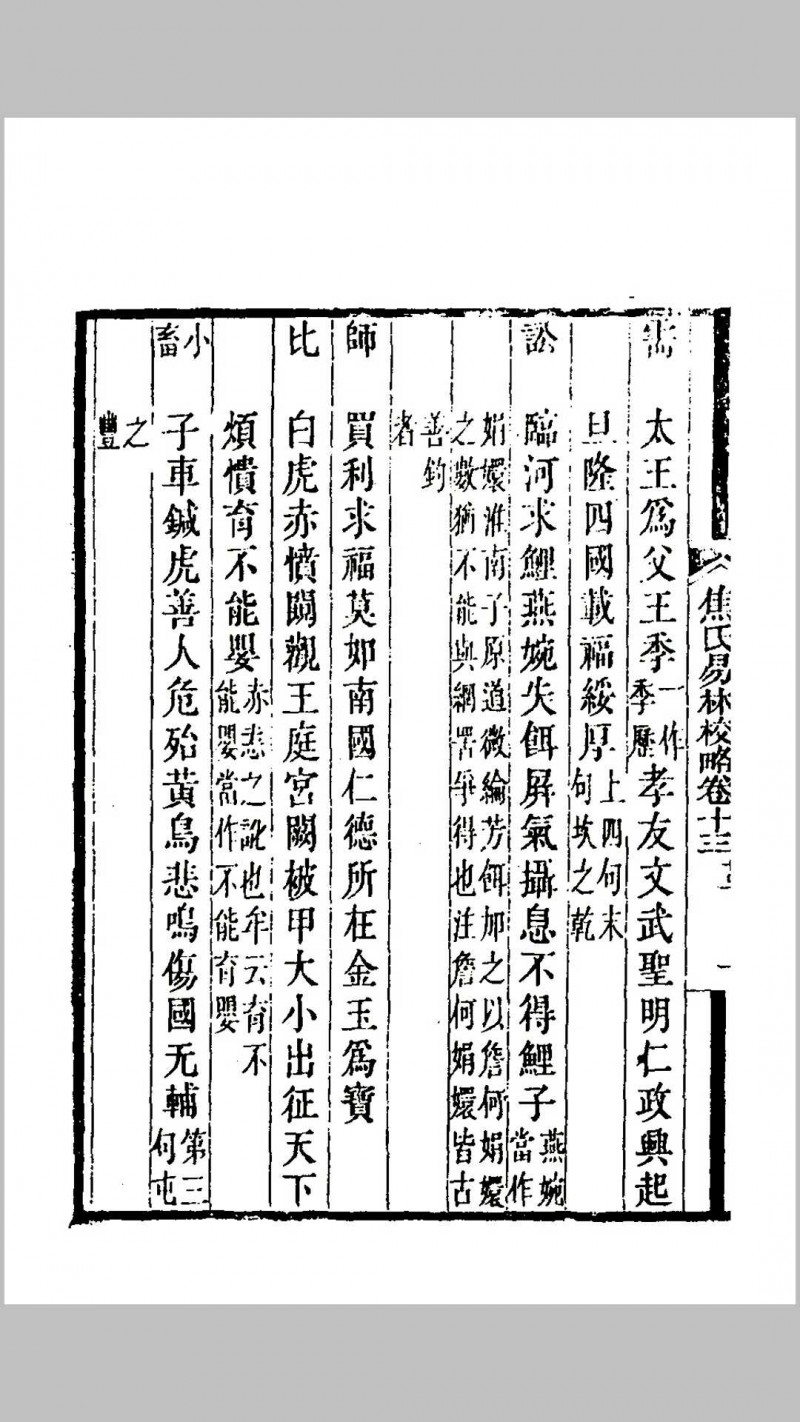 焦氏易林校略卷十三
需 太王爲父王季一作季歷孝友文武聖明仁政興起
旦隆四國載福綏厚上四句末句坎之乾
訟 臨河求鯉燕婉失餌屏氣攝息不得鯉子燕婉當作
娟嬛淮南子原道微綸芳餌加之以詹何娟嬛之數猶不能與網罟爭得也注詹何娟嬛皆古
善鈞者
師 買利求福莫如南國仁德所在金玉爲寶
比 白虎赤憤鬭觀王庭宮闕被甲大小出征天下
煩憒育不能嬰赤悲之訛也牟云育不能嬰當作不能育嬰
小畜 子車鍼虎善人危殆黃鳥悲鳴傷國无輔第三句屯
之豐